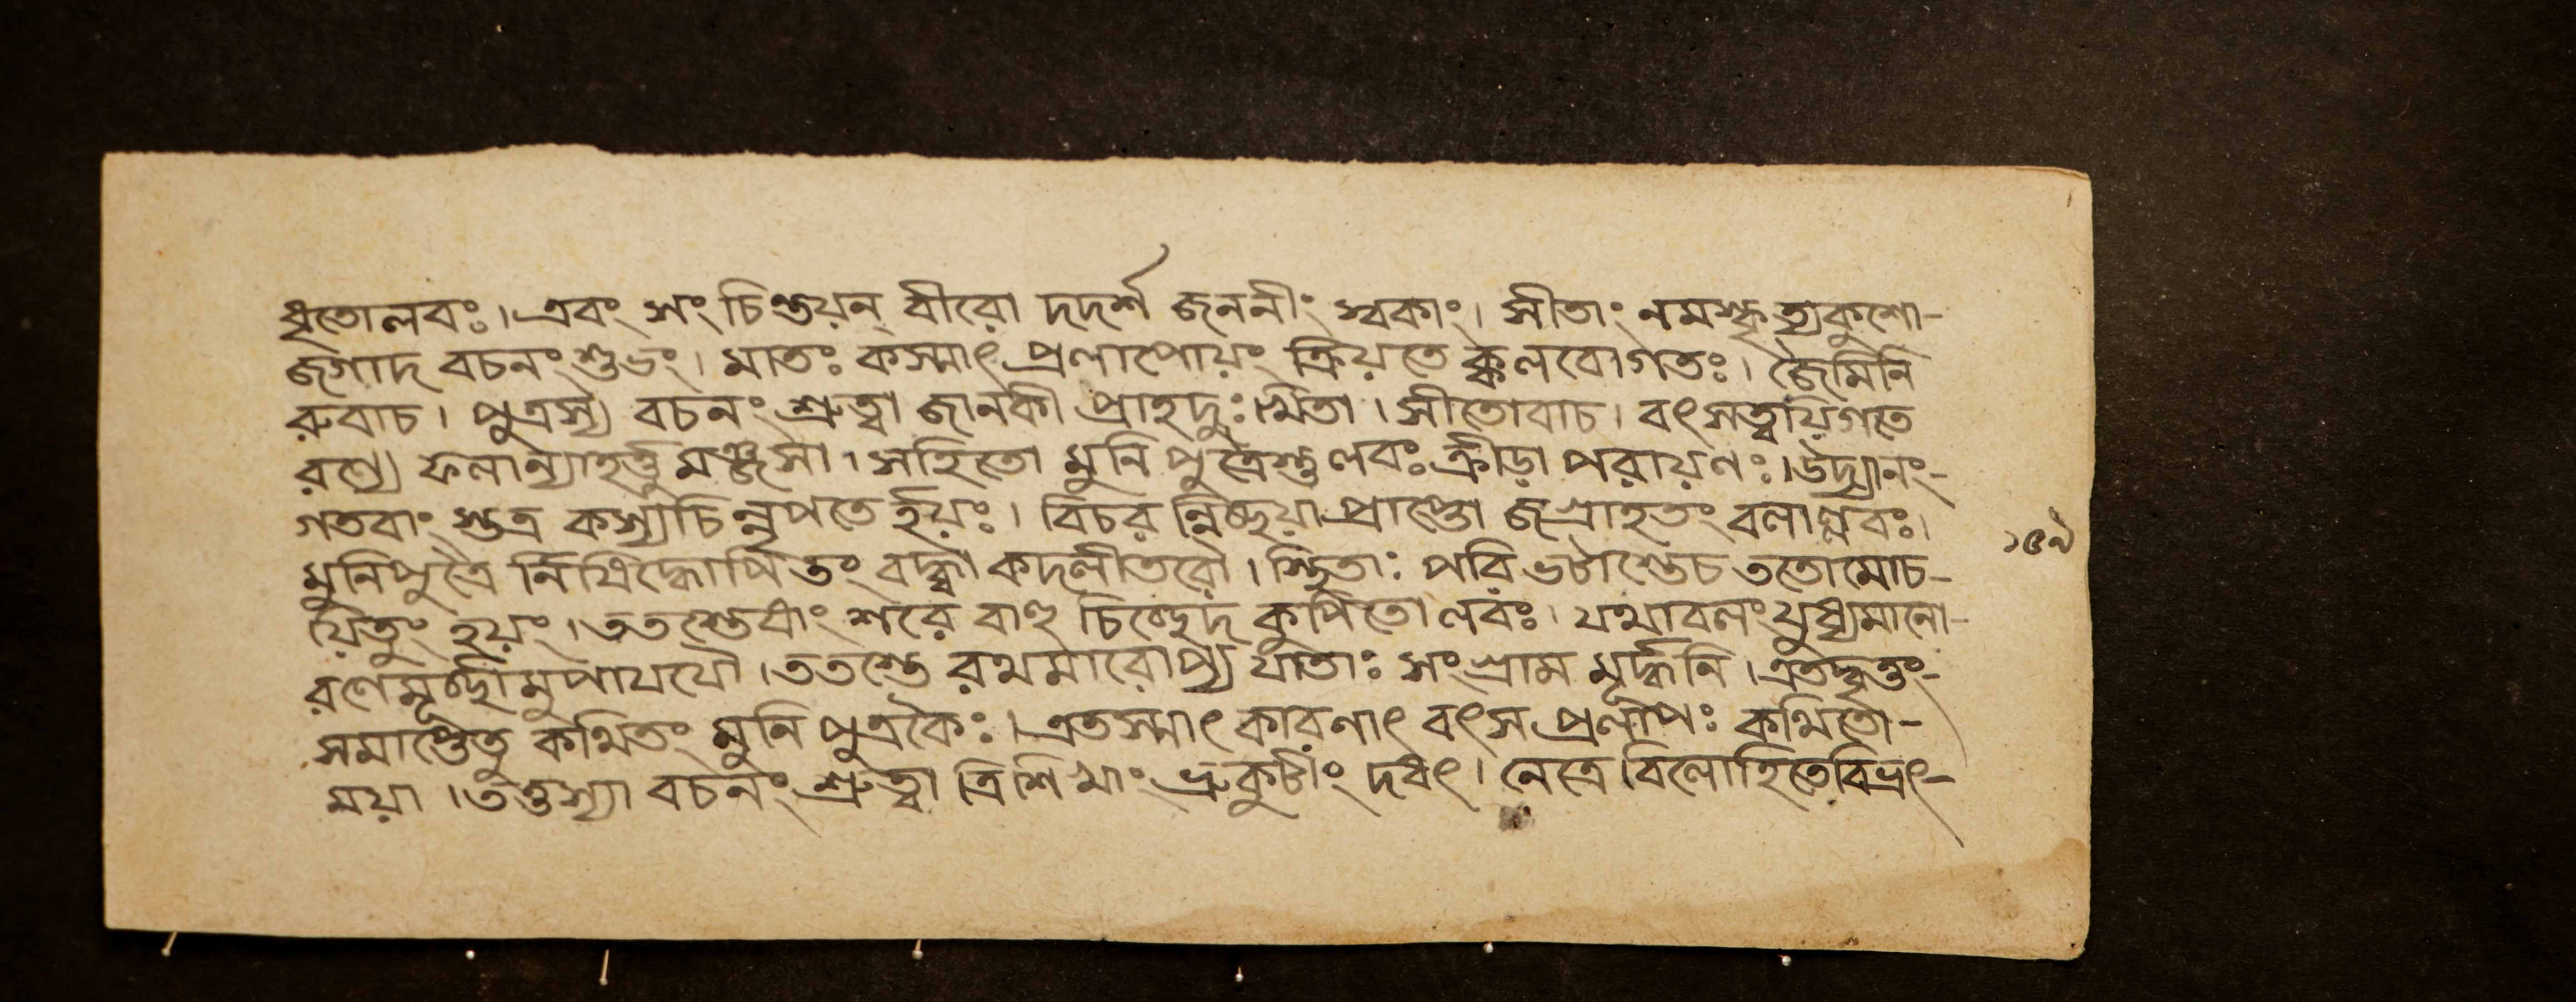 ধৃতোলবঃ। এবং সং চিন্তয়ন্ বীরো দদর্শ জননীং স্বকাং। সীতাং নমস্কৃত্যকুশো-
জগাদ বচনং শুভং। মাতঃ কস্মাৎ প্রলাপোয়ং ক্রিয়তে ক্কলবোগতঃ। জৈমিনি
রুবাচ। পুত্রস্য বচনং শ্রুত্বা জানকী প্রাহদুঃখিতা। সীতোবাচ। বৎসত্বয়িগতে
রণ্যে ফলান্যাহর্ত্তুমঞ্জসা। সহিতো মুনি পুত্রৈস্তু লবঃ ক্রীড়া পরায়ণঃ। উদ্যানং-
গতবাং স্তত্র কস্যচিন্নৃপতে র্হয়ঃ। বিচরন্নিচ্ছয়া প্রাপ্তো জগ্রাহতং বলাল্লবঃ।
মুনিপুত্রৈ র্নিষিদ্ধোপি তং বদ্ধ্বা কদলীতরৌ। স্থিতাঃ পরি ভটাস্তেচ ততোমোচ-
য়িতুং হয়ং। ততস্তেষাং শরৈ বাহু চিচ্ছেদ কুপিতো লবঃ। যথাবলং যুধ্যমানো-
রণেমূর্চ্ছামুপাযযৌ। ততস্তে রথমারোপ্য যাতাঃ সংগ্রাম মূর্দ্ধনি। এতদ্বৃত্তং-
সমাপ্তেতু কথিতং মুনি পুত্রকৈঃ। এতস্মাৎ কারণাৎ বৎস প্রলাপঃ কথিতো-
ময়া। তত্তস্যা বচনং শ্রুত্বা ত্রিশিখাং ভ্রুকুটীং দধৎ। নেত্রে বিলোহিতেবিভ্রৎ-
১৫৯